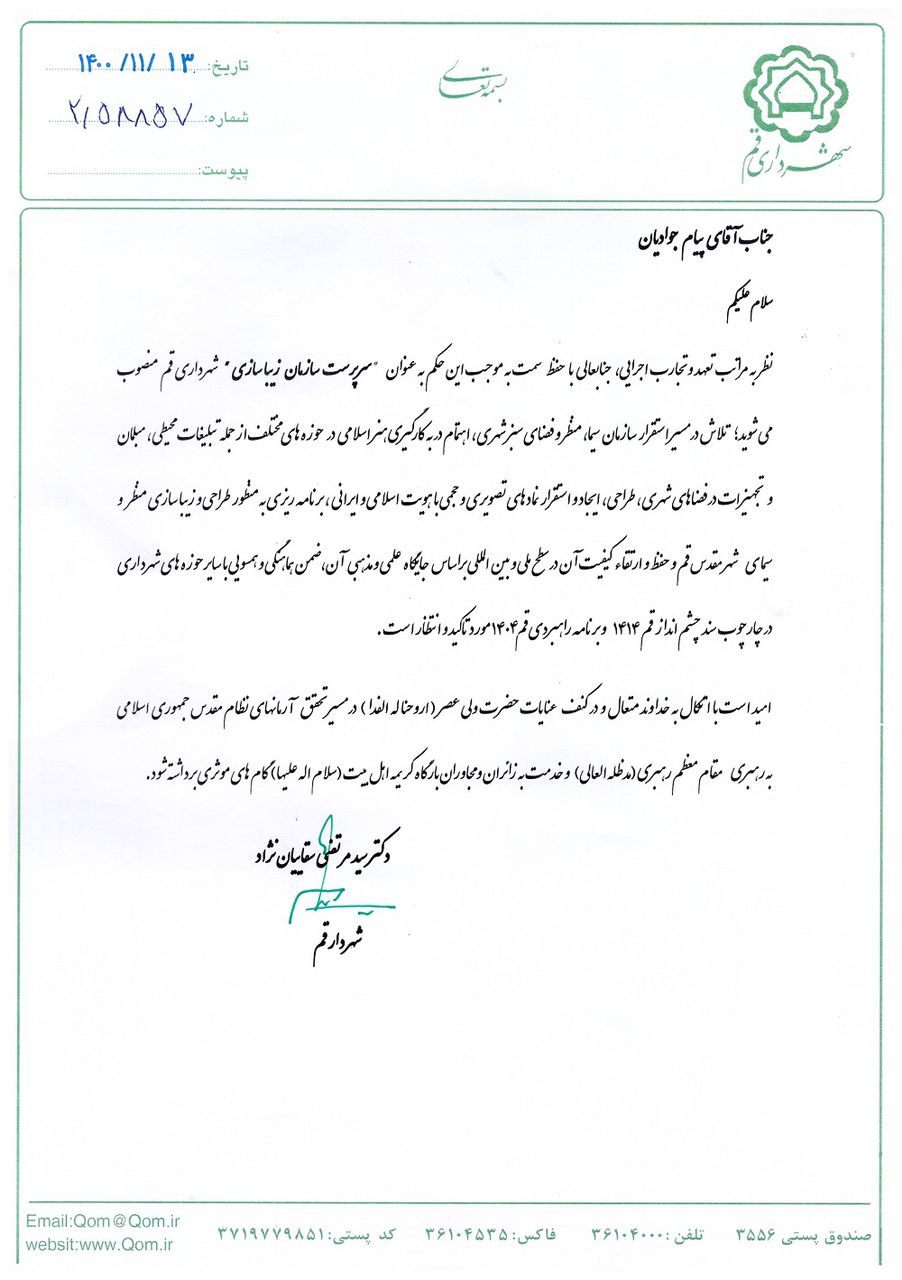 بسمه تعالی
شهرداری قم
تاریخ: ۱۴۰۰/۱۱/۱۳
شماره: ۲/۵۸۸۵۷
پیوست:
جناب آقای پیام جوادیان
سلام علیکم
نظر به مراتب تعهد و تجارب اجرایی، جنابعالی با حفظ سمت به موجب این حکم به عنوان "سرپرست سازمان زیباسازی" شهرداری قم منصوب
می شوید؛ تلاش در مسیر استقرار سازمان سیما، منظر و فضای سبز شهری، اهتمام در به کارگیری هنر اسلامی در حوزه های مختلف از جمله تبلیغات محیطی، مبلمان
و تجهیزات در فضاهای شهری، طراحی، ایجاد و استقرار نمادهای تصویری و حجمی با هویت اسلامی و ایرانی، برنامه ریزی به منظور طراحی و زیباسازی منظر و
سیمای شهر مقدس قم و حفظ و ارتقاء کیفیت آن در سطح ملی و بین المللی براساس جایگاه علمی و مذهبی آن، ضمن هماهنگی و همسویی با سایر حوزه های شهرداری
در چارچوب سند چشم انداز قم ۱۴۱۴ و برنامه راهبردی قم ۱۴۰۴ مورد تاکید و انتظار است.
امید است با اتکال به خداوند متعال و در کنف عنایات حضرت ولی عصر (ارواحناله الفدا) در مسیر تحقق آرمانهای نظام مقدس جمهوری اسلامی
به رهبری مقام معظم رهبری (مدظله العالی) و خدمت به زائران و مجاوران بارگاه کریمه اهل بیت (سلام اله علیها) گام های موثری برداشته شود.
دکتر سید مرتضی سقاییان نژاد
شهردار قم
صندوق پستی ۳۵۵۶ تلفن: ۳۶۱۰۴۰۰۰ فاکس: ۳۶۱۰۴۵۳۵ کد پستی: ۳۷۱۹۷۷۹۸۵۱
Email:Qom@Qom.ir
websit:www.Qom.ir